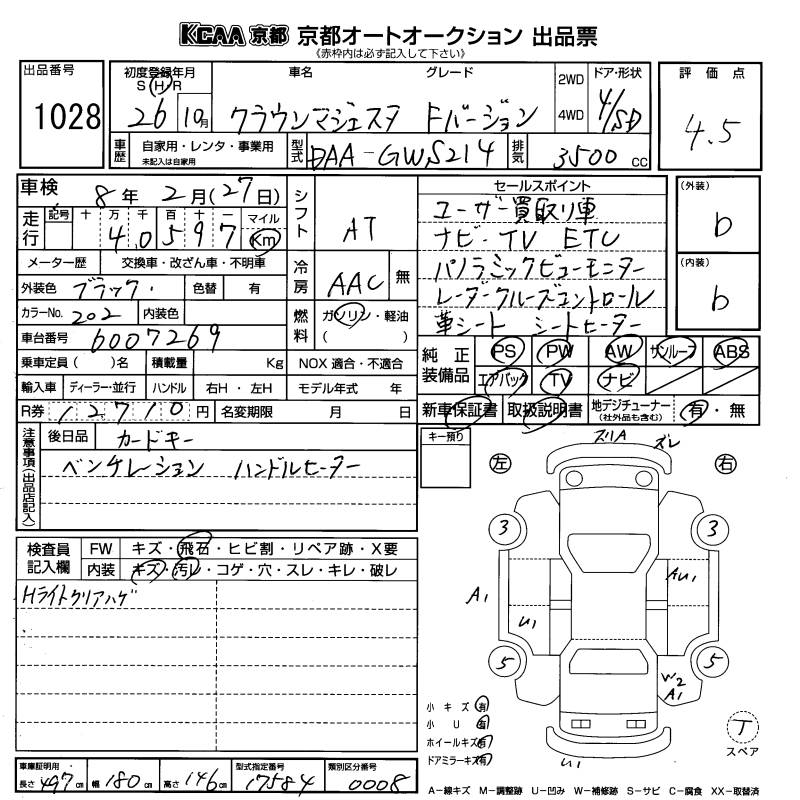 KCAA 京都 京都オートオークション 出品票
《赤枠内は必ず記入して下さい》
出品番号
1028
初度登録年月 車名 グレード
S H R
26 10月 クラウンマジェスタ Fバージョン
2WD
4WD
ドア・形状
4/SD
評価点
4.5
車歴 自家用・レンタ・事業用
未記入は自家用
型式 DAA-GWS214
排気 3500 CC
車検 8年 2月(27日)
走行 記号 十 万 千 百 十 一 マイル
4 0 5 9 7 Km
シフト AT
メーター歴 交換車・改ざん車・不明車
外装色 ブラック 色替 有
冷房 AAC 無
カラーNo. 202 内装色
燃料 ガソリン・軽油
( )
車台番号 6007269
乗車定員 ( )名 積載量 Kg NOX 適合・不適合
輸入車 ディーラー・並行 ハンドル 右H・左H モデル年式 年
R券 12710円 名変期限 月 日
セールスポイント
ユーザー買取り車
ナビ・TV ETC
パノラミックビューモニター
レーダークルーズコントロール
革シート シートヒーター
(外装)
b
(内装)
b
純正装備品 PS PW AW サンルーフ ABS
エアバック TV ナビ
新車保証書 取扱説明書 地デジチューナー (社外品も含む) 有・無
注意事項(出品店記入)
後日品 カードキー
ベンチレーション ハンドルヒーター
キー預り
検査員記入欄
FW キズ・飛石・ヒビ割・リペア跡・X要
内装 キズ・汚レ・コゲ・穴・スレ・キレ・破レ
Hライトクリアハゲ
ズリA ズレ
左 右
3 3
A1 AU1
U1
5 5
W2
A1
U1
小キズ 有
小U 有
ホイールキズ 有
ドアミラーキズ 有
T
スペア
車庫証明用
長さ 497cm 幅 180cm 高さ 146cm
型式指定番号 17584
類別区分番号 0008
A−線キズ M−調整跡 U−凹み W−補修跡 S−サビ C−腐食 XX−取替済